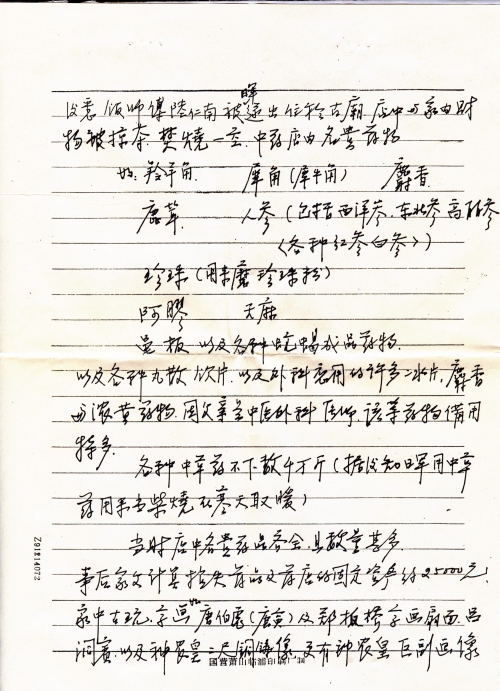 后悉, 饭师傅陆仁南被日军逐出住於古庙, 店中与家内财
物被掠夺, 焚烧一空. 中药店内名贵药物
如: 羚羊角. 犀角 (犀牛角) 麝香.
鹿茸. 人参 (包括西洋参, 东北参 高丽参
<各种红参白参>)
珍珠 (用来磨珍珠粉)
阿胶 天麻
龟板 以及各种 成品药物.
以及各种丸散饮片. 以及外科应用的许多二冰片, 麝香
与浓黄药物, 因父亲是中医外科医师, 该等药物备用
特多.
各种中草药不下数千万斤 (据后知日军用中草
药用来当柴烧在寒天取暖)
当时店中名贵药品齐全, 且数量甚多.
事后家父计其损失药品及药店的固定资产约25000元!
家中古玩, 字画如唐伯虎(唐寅)及郑板桥字画扇面. 吕
洞宾. 以及神农皇二尺铜铸像, 更有神农皇巨副画像
国营萧山临浦印刷厂
Z91W14072